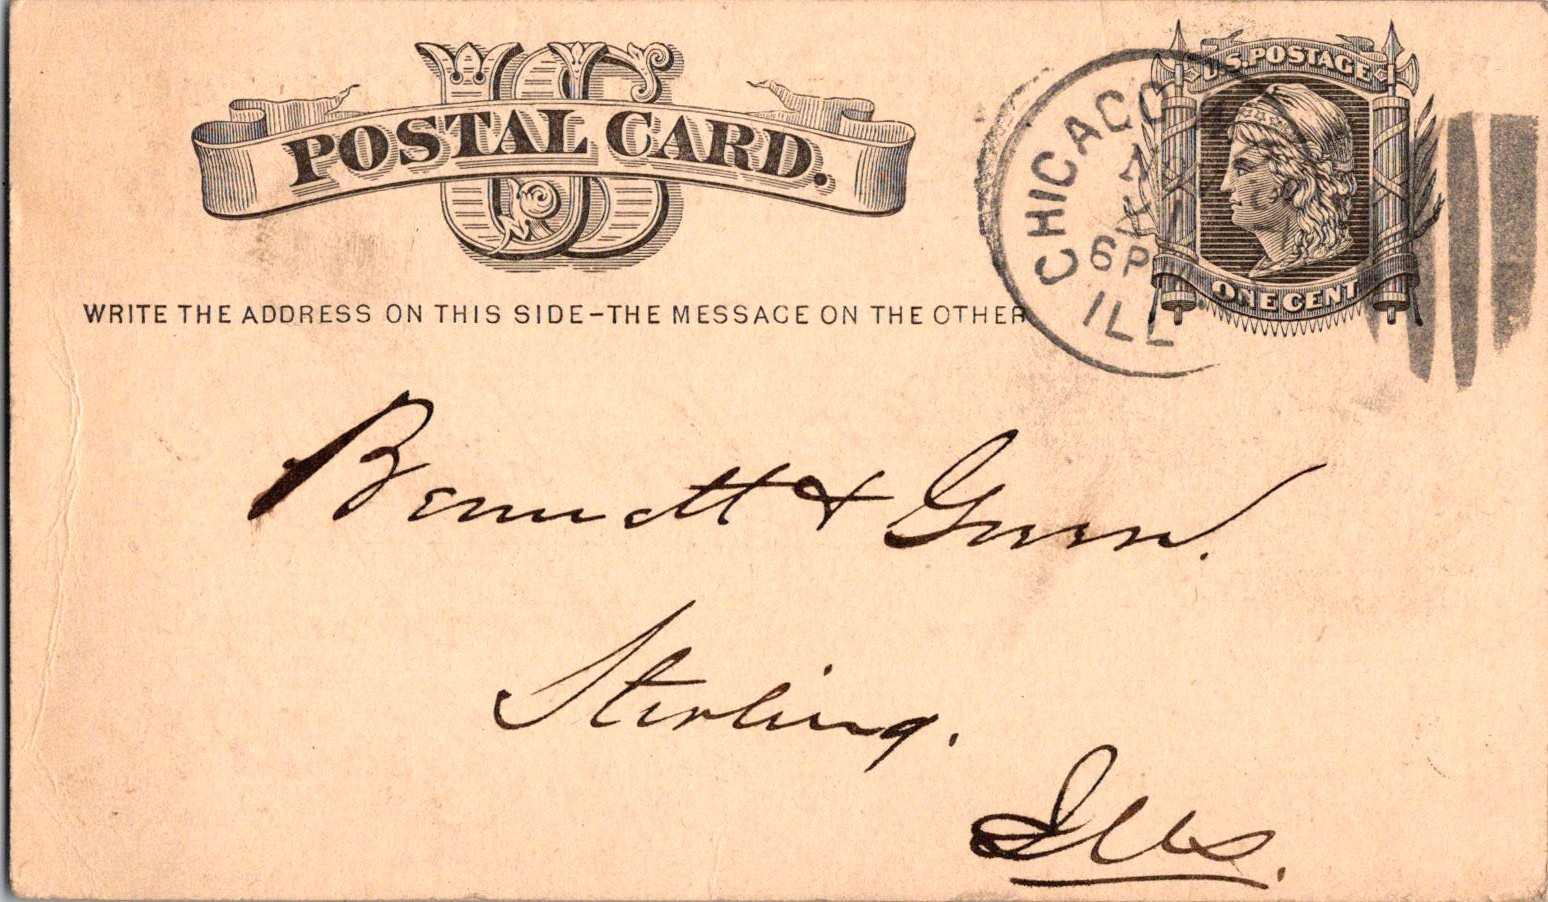 US
POSTAL CARD.
WRITE THE ADDRESS ON THIS SIDE-THE MESSAGE ON THE OTHER
U.S. POSTAGE
ONE CENT
CHICAGO
6P
ILL
Bennett & Green.
Sterling.
Ills.